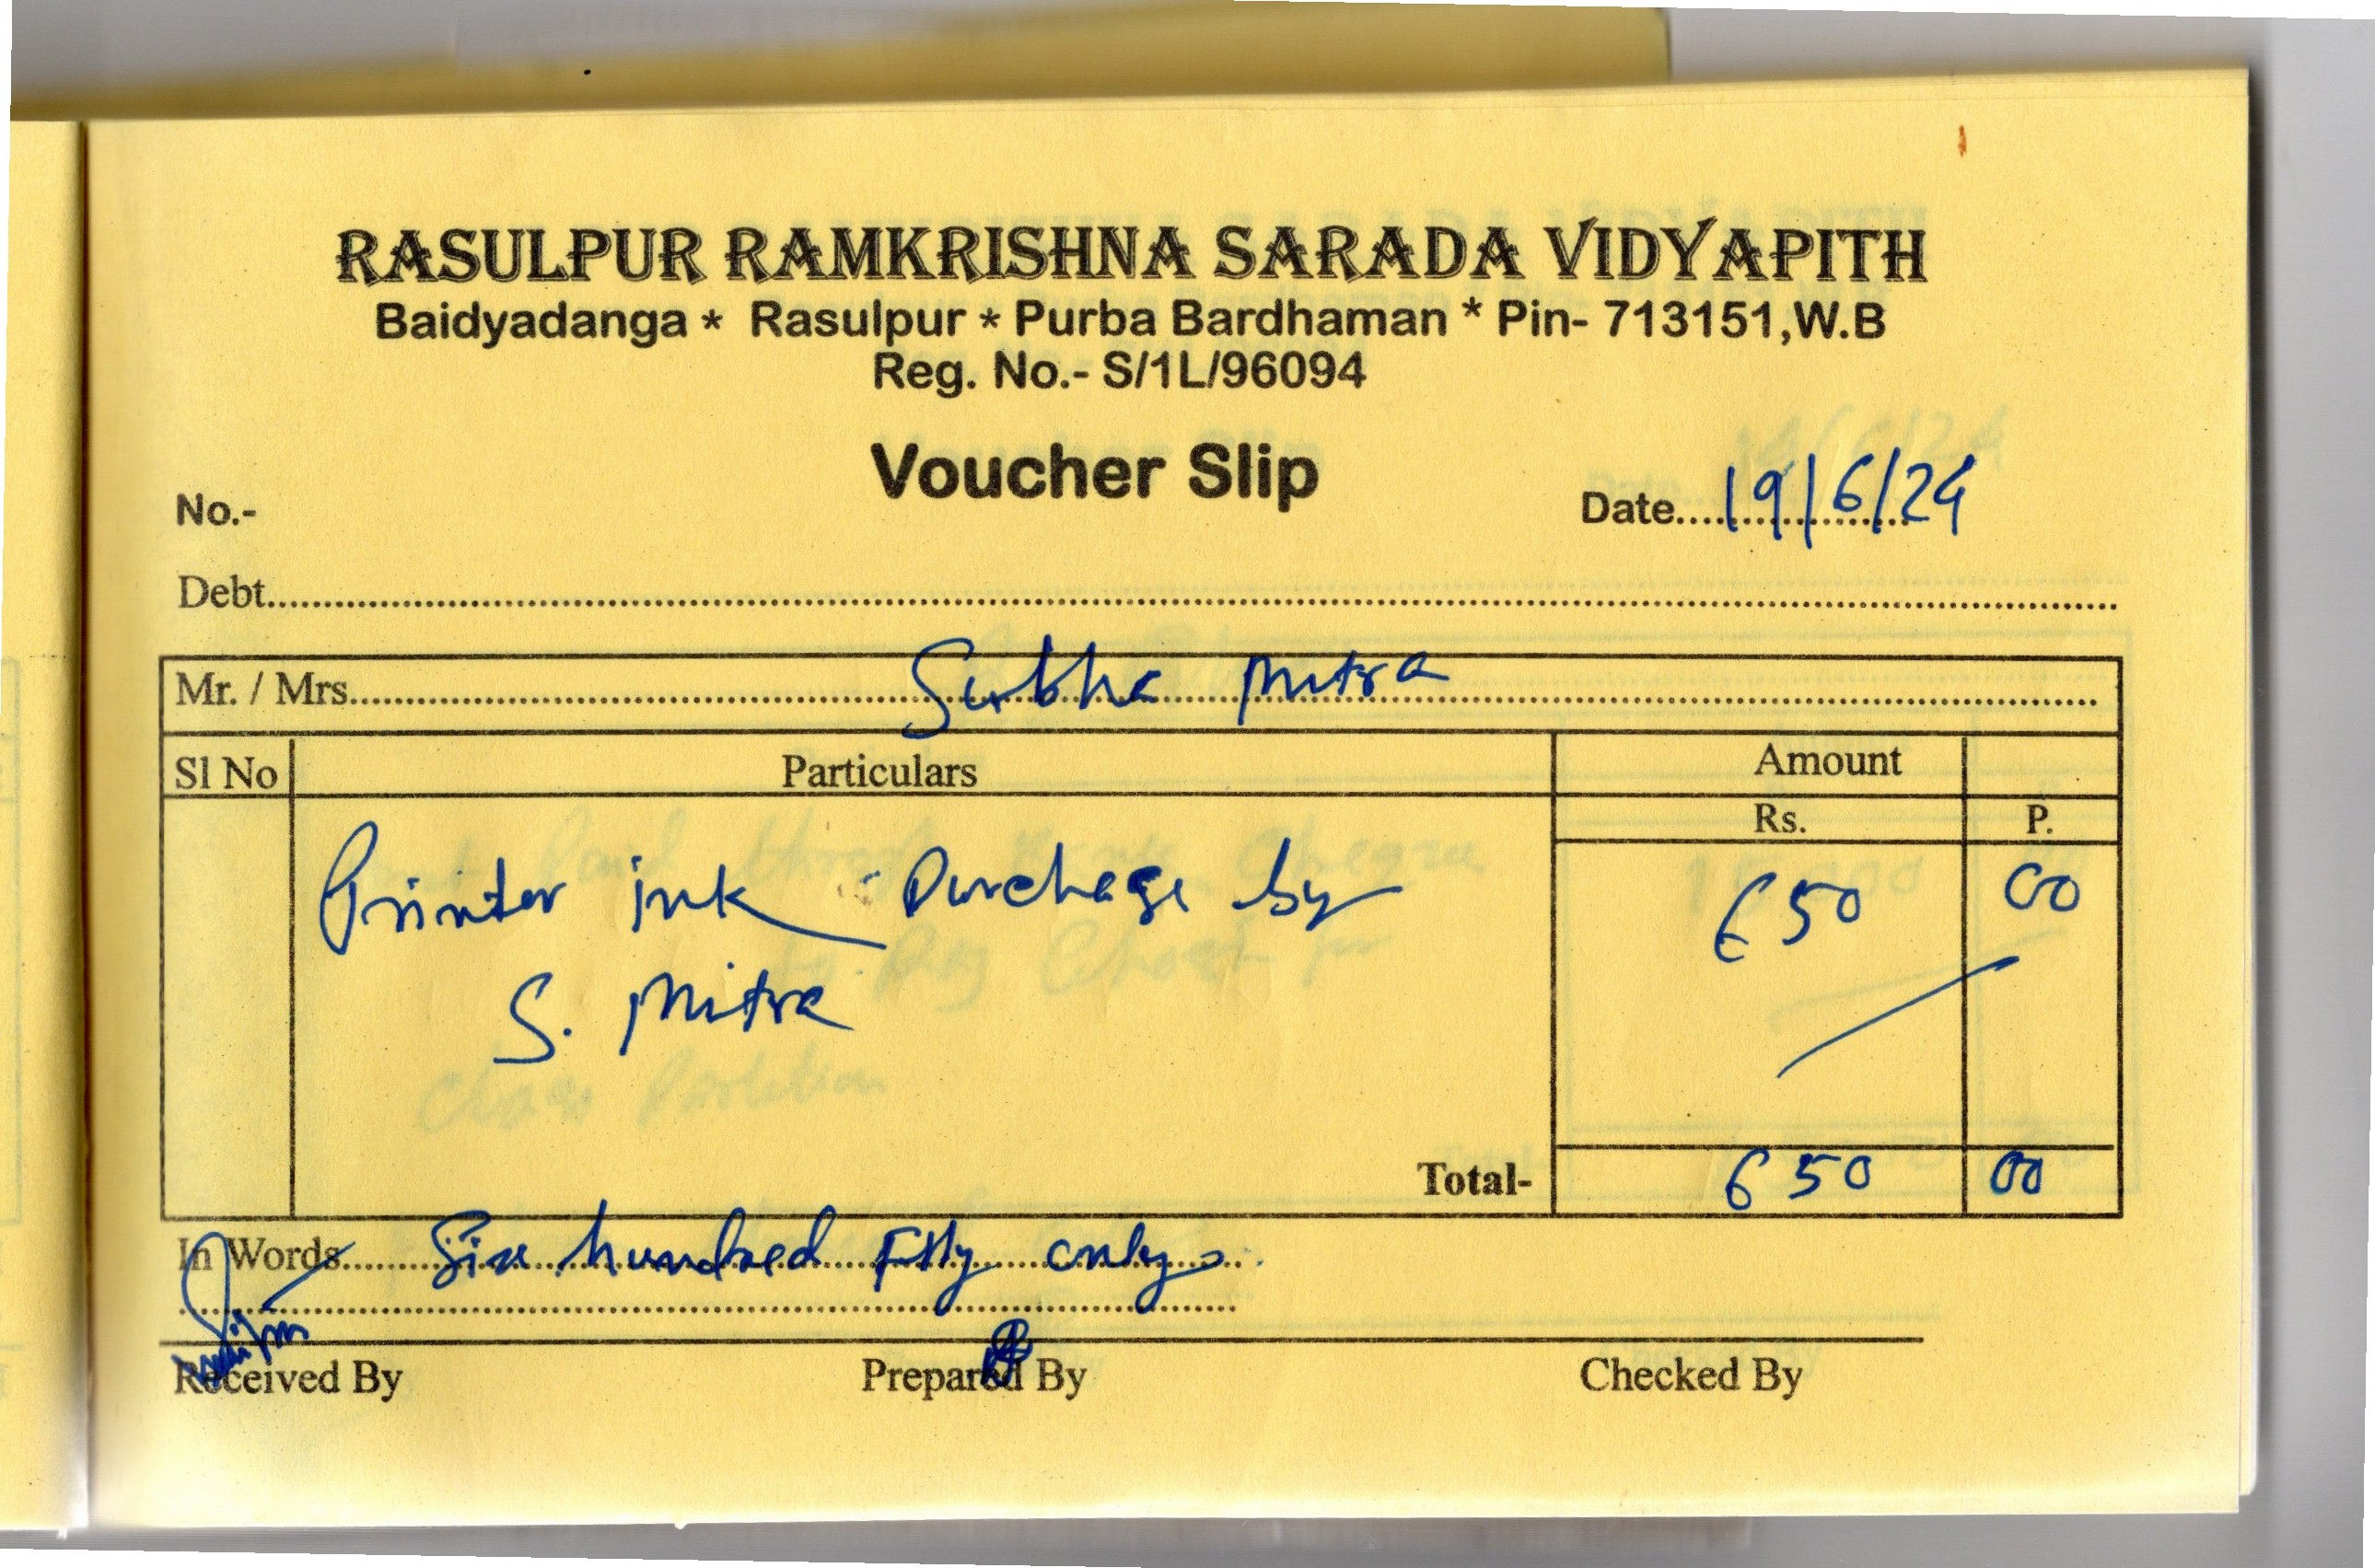 RASULPUR RAMKRISHNA SARADA VIDYAPITH
Baidyadanga * Rasulpur * Purba Bardhaman * Pin- 713151,W.B
Reg. No.- S/1L/96094
Voucher Slip
No.- Date.... 19/6/24
Debt
Mr. / Mrs. Subha Mitra
Sl No Particulars Amount
Rs. P.
Printer ink Purchage by 650 00
S. Mitra
Total- 650 00
In Words Six hundred Fifty only
Received By Prepared By Checked By